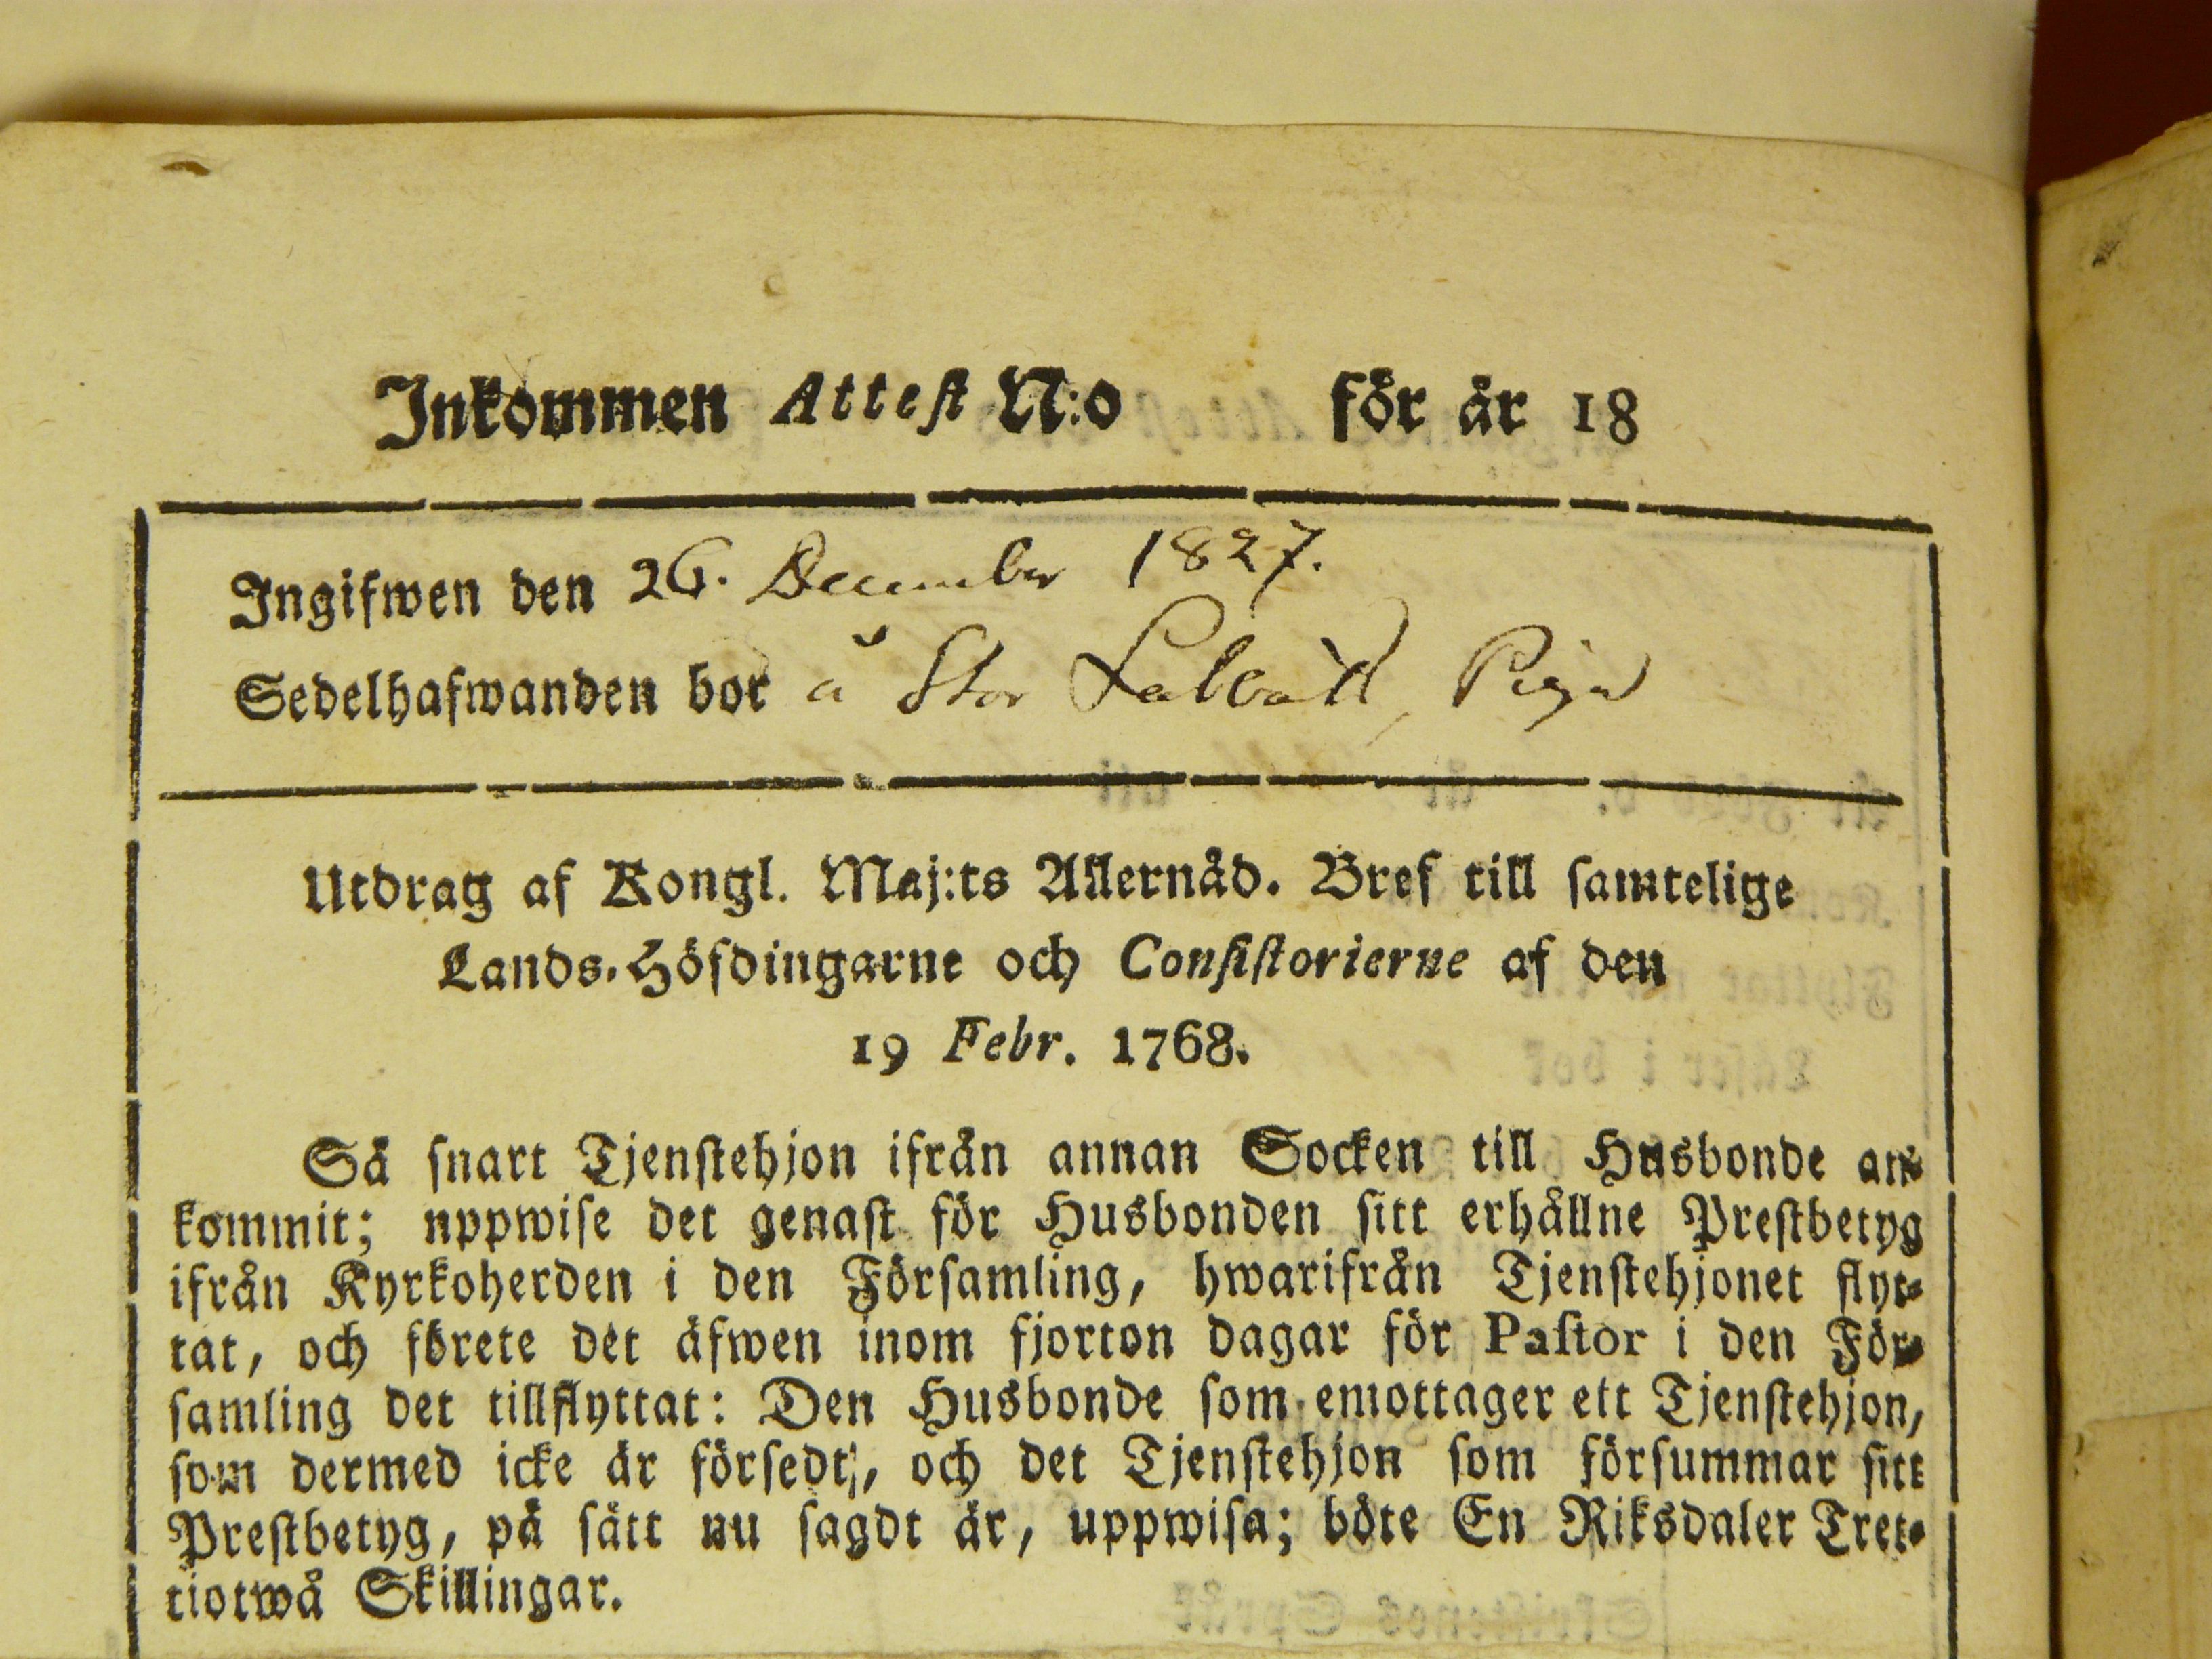 Inkommen Attest N:o för år 18
Ingifwen den 26. December 1827.
Sedelhafwanden bor å Stor Labbäll, Piga
Utdrag af Kongl. Maj:ts Allernåd. Bref till samtelige
Lands-Höfdingarne och Consistorierne af den
19 Febr. 1768.
Så snart Tjenstehjon ifrån annan Socken till Husbonde an-
kommit; nppwise det genast för Husbonden sitt erhållne Prestbetyg
ifrån Kyrkoherden i den Församling, hwarifrån Tjenstehjonet flyt-
tat, och förete det äfwen inom fjorton dagar för Pastor i den För-
samling det tillflyttat: Den Husbonde som emottager ett Tjenstehjon,
som dermed icke är försedt, och det Tjenstehjon som försummar sitt
Prestbetyg, på sätt nu sagdt är, uppwisa; böte En Riksdaler Tret-
tiotwå Skillingar.